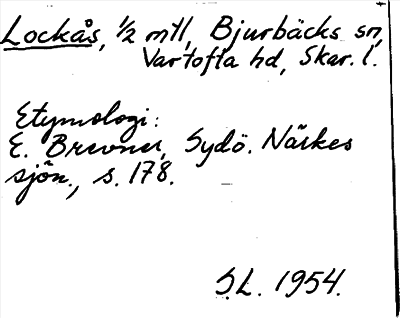 Lockås, 1/2 mtl, Bjurbäcks sn,
Vartofta hd, Skar. l.
Etymologi:
E. Brevner, Sydö. Närkes
sjön., s. 178.
S.L. 1954.